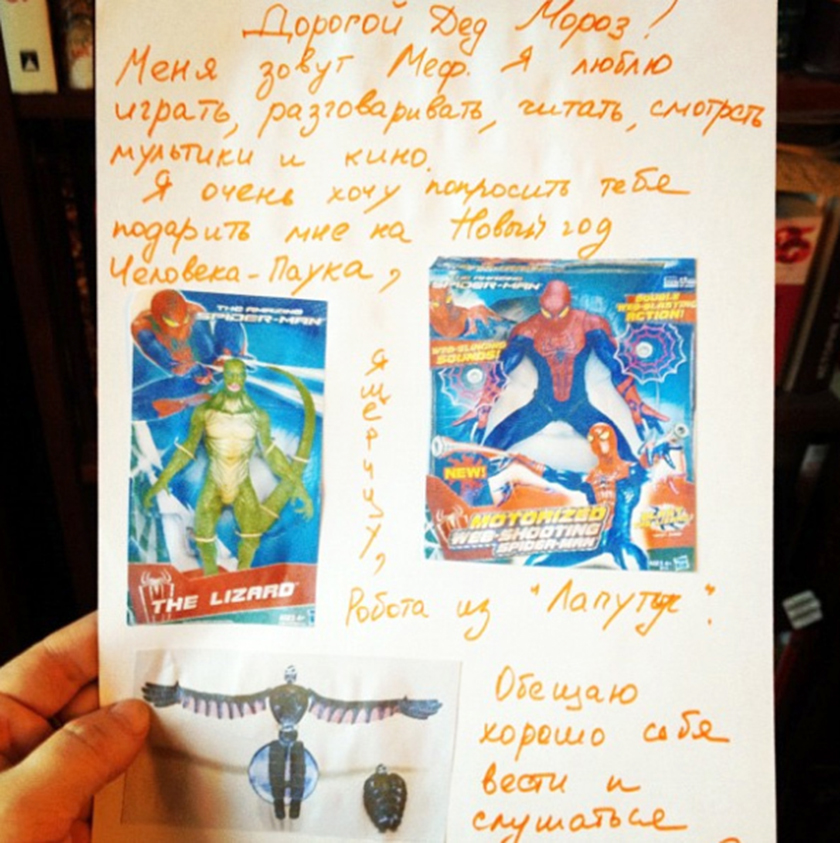 Дорогой Дед Мороз!
Меня зовут Меф. Я люблю
играть, разговаривать, читать, смотреть
мультики и кино.
Я очень хочу попросить тебя
подарить мне на Новый год
Человека-Паука,
THE AMAZING
SPIDER-MAN
THE LIZARD
Ящерицу,
THE AMAZING
SPIDER-MAN
DOUBLE
WEB-BLASTING
ACTION!
WEB-SLINGING
SOUNDS!
NEW!
MOTORIZED
WEB-SHOOTING
SPIDER-MAN
Робота из "Лапуты".
Обещаю
хорошо себя
вести и
слушаться